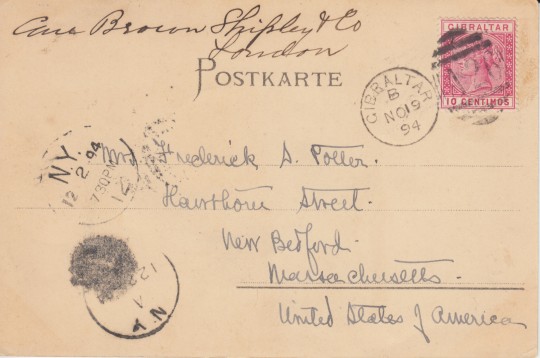 Care Brown Shipley & Co
London
POSTKARTE
GIBRALTAR
10 CENTIMOS
GIBRALTAR
B
NO 19
94
N.Y.
12 2 94
7 30 PM
Mrs. Frederick S. Potter.
Hawthorn Street.
New Bedford.
Massachusetts.
United States of America
N Y